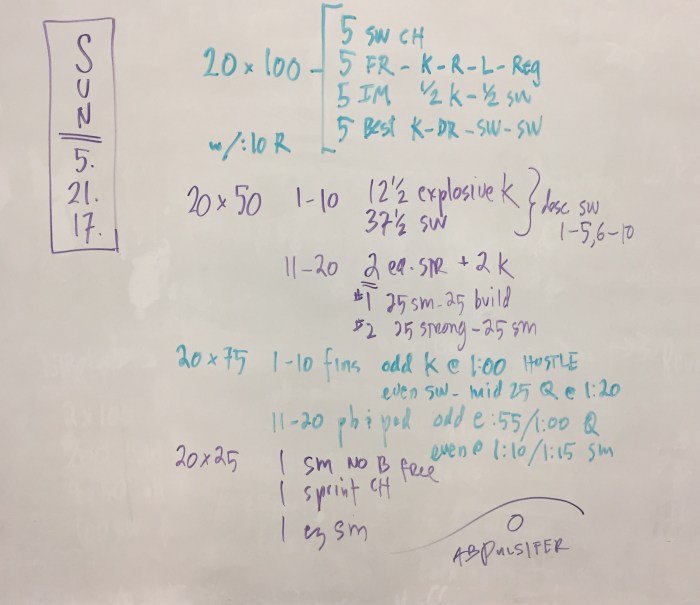 SUN
5.
21.
17.
20 x 100 - 5 SW CH
5 FR - K - R - L - Reg
5 IM 1/2 K - 1/2 SW
5 Best K - DR - SW - SW
w/:10 R
20 x 50 1-10 12 1/2 explosive K
37 1/2 SW
desc SW
1-5, 6-10
11-20 2 ea. STR + 2 K
#1 25 sm - 25 build
#2 25 strong - 25 sm
20 x 75 1-10 fins odd K @ 1:00 HUSTLE
even SW - mid 25 Q @ 1:20
11-20 pb & pad odd @ :55/1:00 Q
even @ 1:10/1:15 sm
20 x 25 1 sm NO B free
1 sprint CH
1 ez sm
ABPULSIFER